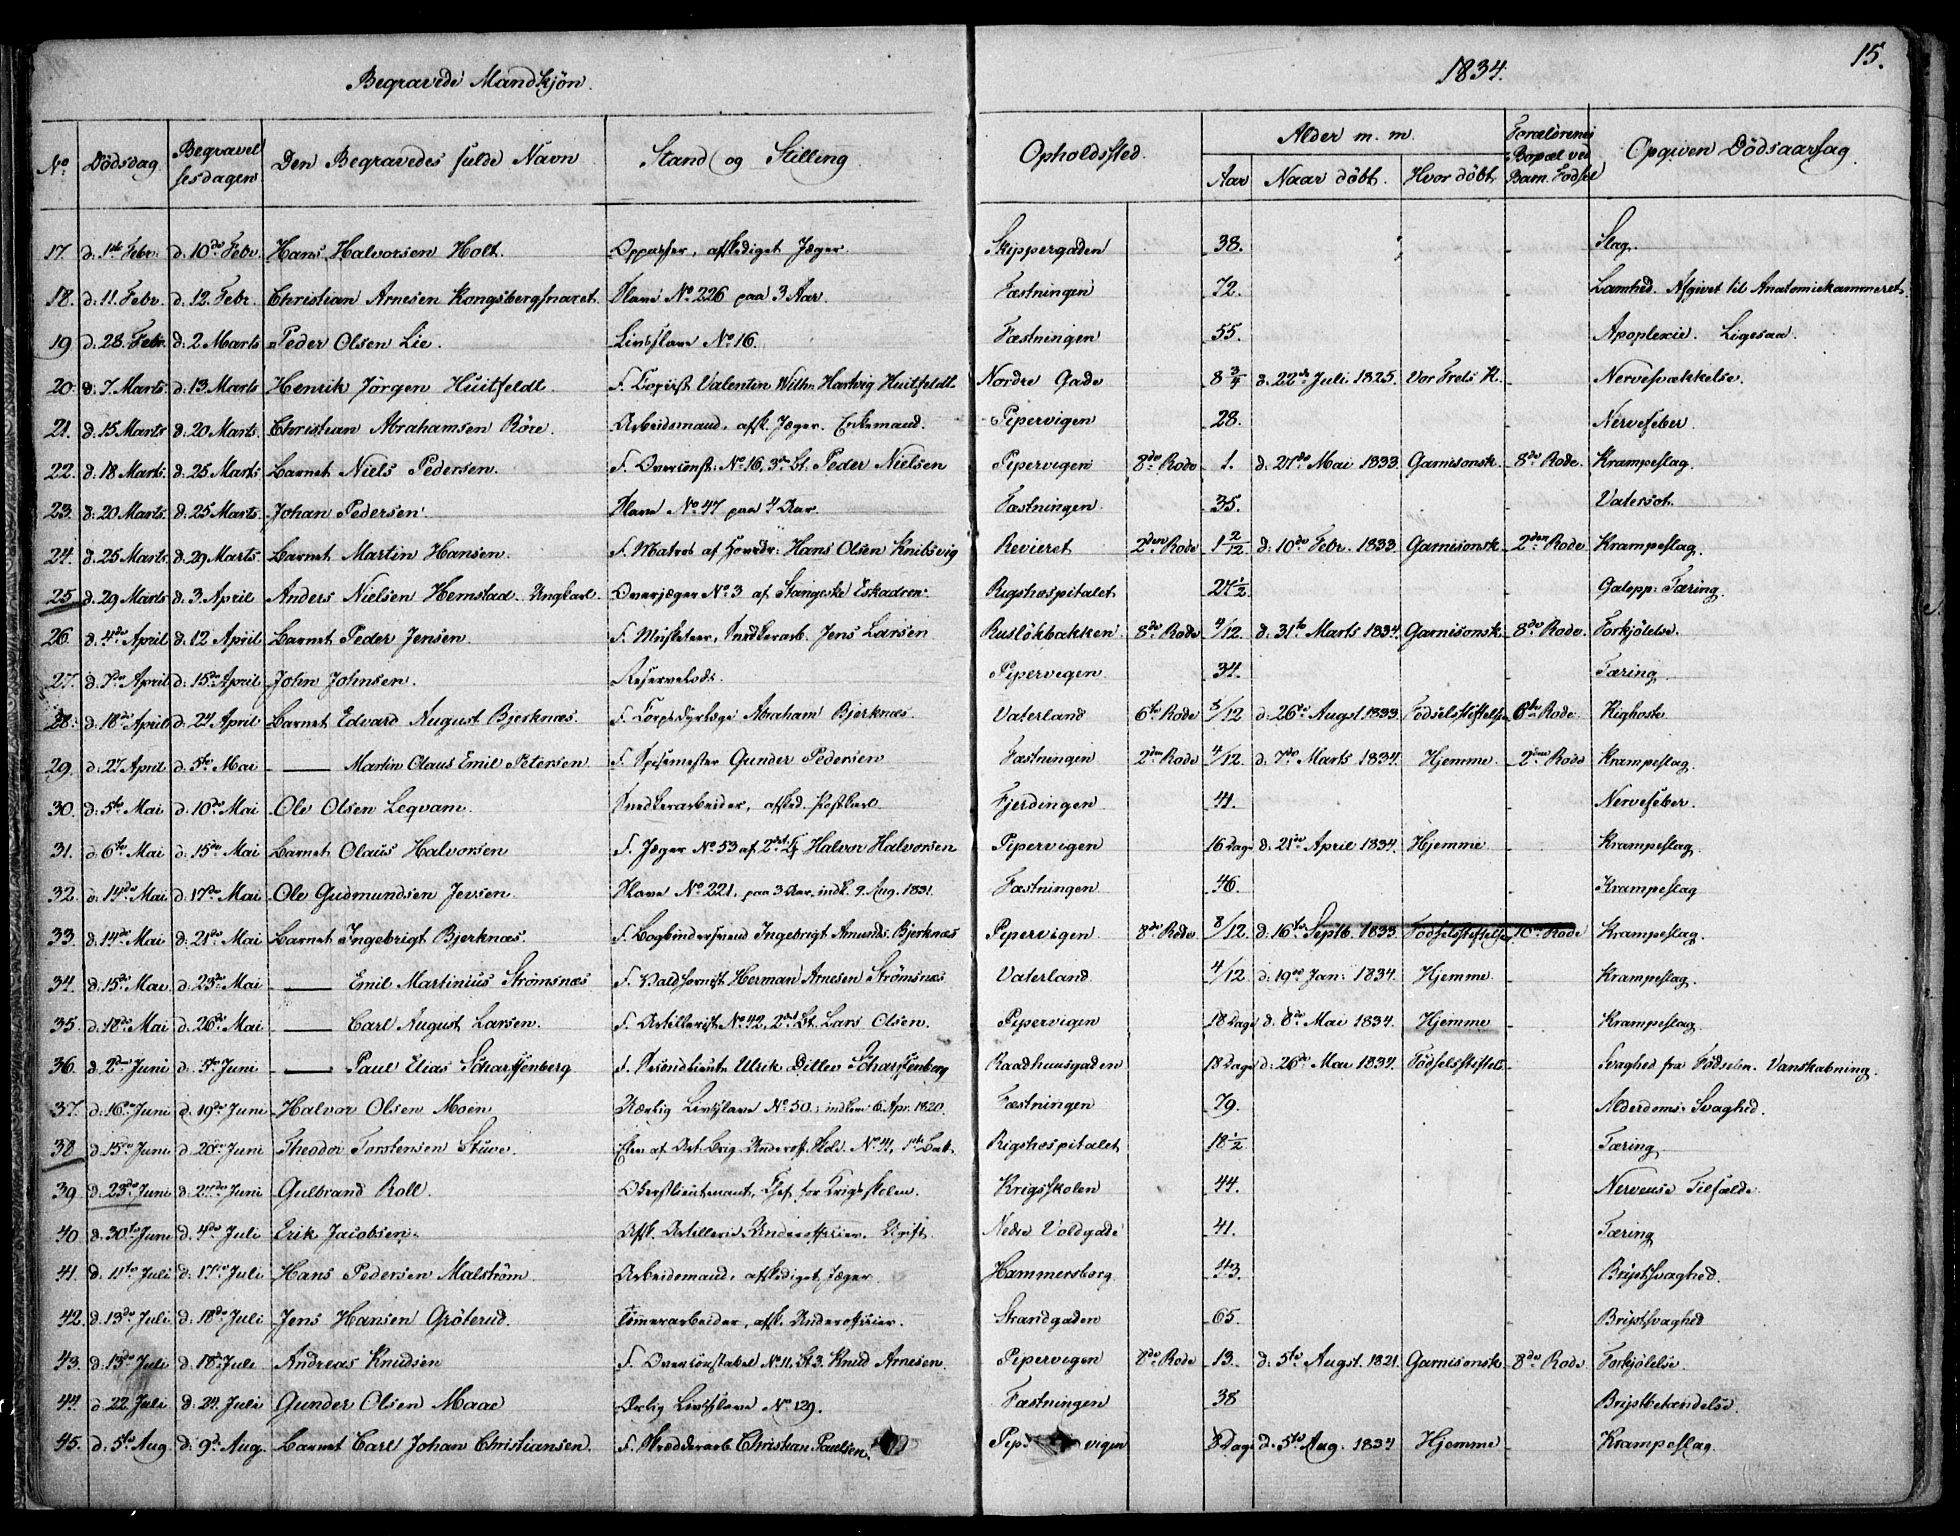 Begravede Mandkjøn. 1834. 15.
No Dödsdag Begravelsesdagen Den Begravedes fulde Navn Stand og Stilling Opholdssted. Alder m. m. Aar Naar döbt. Hvor döbt Forældrenes Bopæl ved Barn. Födsel Opgiven Dödsaarsag
17. d. 1ste Febr. d. 10de Febr. Hans Halvorsen Holt. Oppasser, afskediget Jæger. Skippergaden 38. Slag.
18. d. 11. Febr. d. 12. Febr. Christian Arnesen Kongsbergsnaret. Slave No 226 paa 3 Aar. Fæstningen 72. Lamhed. Afgivet til Anatomiekammeret.
19 d. 28. Febr. d. 2 Marts Peder Olsen Lie. Livsslave No 16. Fæstningen 55. Apoplexie. Ligesaa.
20. d. 7 Marts. d. 13 Marts Henrik Jörgen Huitfeldt. S. Copiist Valentin Wilh. Hartvig Huitfeldt. Nordre Gade 8 3/4 d. 22de Juli 1825. Vor Frels K. Nervesvækkelse.
21. d. 15 Marts d. 20 Marts. Christian Abrahamsen Röre. Arbeidsmand, afsk. Jæger. Enkemand. Pipervigen 28. Nervefeber.
22. d. 18 Marts. d. 25 Marts Barnet Niels Pedersen. S. Overconst. No 16, 3de Bt. Peder Nielsen Pipervigen 8de Rode 1. d. 27de Mai 1833. Garnisonsk. 8de Rode. Krampeslag.
23. d. 20 Marts. d. 25 Marts. Johan Pedersen. Slave No 47 paa 4 Aar. Fæstningen 35. Vatersot.
24. d. 25 Marts d. 29 Marts. Barnet Martin Hansen. S. Matros af Hans Olsen Knitsvig Revieret 2den Rode 1 2/12 d. 10de Febr. 1833. Garnisonsk. 2den Rode Krampeslag.
25 d. 29 Marts d. 3. April Anders Nielsen Hemstad. Ungkarl. Overjæger No 3 af Stangeske Eskadron. Rigshospitalet 27 1/2 Galopp. Tæring.
26. d. 4de April d. 12 April Barnet Peder Jensen. S. Musketeer, Snedkerarb. Jens Larsen Ruslökbakken. 8de Rode 4/12 d. 31te Marts 1834. Garnisonsk. 8de Rode. Forkjölelse.
27. d. 7de April d. 15de April John Johnsen. Reservelods. Pipervigen 34. Tæring.
28. d. 18de April d. 24 April Barnet Edvard August Bjerknæs. S. Corpsdyrlæge Abraham Bjerknæs Vaterland 6te Rode 3/12 d. 26de Augst. 1833. Födselsstiftelsen 6te Rode. Kighoste.
29. d. 27 April d. 5te Mai —— Martin Olaus Emil Petersen S. Spisemester Gunder Pedersen Fæstningen 2den Rode 4/12 d. 7de Marts 1834. Hjemme. 2den Rode Krampeslag.
30. d. 5te Mai d. 10de Mai Ole Olsen Leqvam. Snedkerarbeider, afsked. Fjerdingen 41. Nervefeber.
31. d. 6te Mai d. 15de Mai Barnet Olaus Halvorsen S. Jæger No 53 af 2det Halvor Halvorsen Pipervigen 16 Dage d. 21de April 1834. Hjemme Krampeslag.
32. d. 14de Mai d. 17de Mai Ole Gudmundsen Jevsen. Slave No 221. paa 3 Aar. indk. 9. Aug. 1831. Fæstningen 46. Krampeslag
33. d. 14de Mai d. 21de Mai Barnet Ingebrigt Bjerknæs. S. Bogbindersvend Ingebrigt Amunds. Bjerknæs Pipervigen 8de Rode 8/12. d. 16te Septb. 1833. Födselsstiftelsen 10de Rode Krampeslag.
34. d. 15de Mai. d. 23de Mai —— Emil Martinius Strömsnæs S. Valdhornist Herman Arnesen Strömsnæs Vaterland 4/12 d. 19de Jan. 1834. Hjemme Krampeslag.
35. d. 18de Mai d. 26de Mai —— Carl August Larsen. S. Artillerist No 42, 2det Bt. Lars Olsen. Pipervigen 18 Dage d. 8de Mai 1834. Hjemme Krampeslag.
36. d. 2den Juni d. 5te Juni —— Paul Elias Scharffenberg S. Secondlieutn. Ulrik Ditlev Scharffenberg Raadhuusgaden 18 Dage d. 26de Mai 1834. Födselsstiftels. Svaghed fra Födselen. Vanskabning.
37. d. 16de Juni d. 19de Juni Halvor Olsen Moen Uærlig Livsslave No 50. indkom 6 Apr. 1820. Fæstningen 79. Alderdoms-Svaghed.
38 d. 15de Juni d. 20de Juni Theodor Torstensen Stuve. Elev af Art. Brig. Underoff. Skole. No 41, 1ste Batt. Rigshospitalet 18 1/2 Tæring
39 d. 23de Juni d. 27de Juni Gulbrand Roll. Oberstlieutenant, Chef for Krigsskolen. Krigsskolen 44. Nerveuse Tilfælde.
40 d. 30te Juni d. 4de Juli Erik Jacobsen. Afsk. Artillerie Underofficier. Ugift. Nedre Voldgade 41. Tæring
41. d. 11te Juli d. 17de Juli Hans Pedersen Malström. Arbeidsmand, afskediget Jæger. Hammersborg. 43. Brystsvaghed.
42. d. 13de Juli d. 18de Juli Jens Hansen Gröterud. Tömmerarbeider, afsk. Underofficier. Strandgaden 65. Brystsvaghed
43. d. 13de Juli d. 18de Juli Andreas Knudsen S. Overconstabel No 11, Bt. 3. Knud Arnesen. Pipervigen 8de Rode 13. d. 5te Augst. 1821. Garnisonsk. 8de Rode Forkjölelse.
44. d. 22 Juli d. 24. Juli Gunder Olsen Maae Ærlig Livsslave No 129. Fæstningen 38 Brystbetændelse.
45. d. 5te Aug d. 9de Aug. Barnet Carl Johan Christiansen. S. Skrædderarb. Christian Paulsen. Pipervigen 8 Dage d. 5te Aug. 1834 Hjemme Krampeslag.